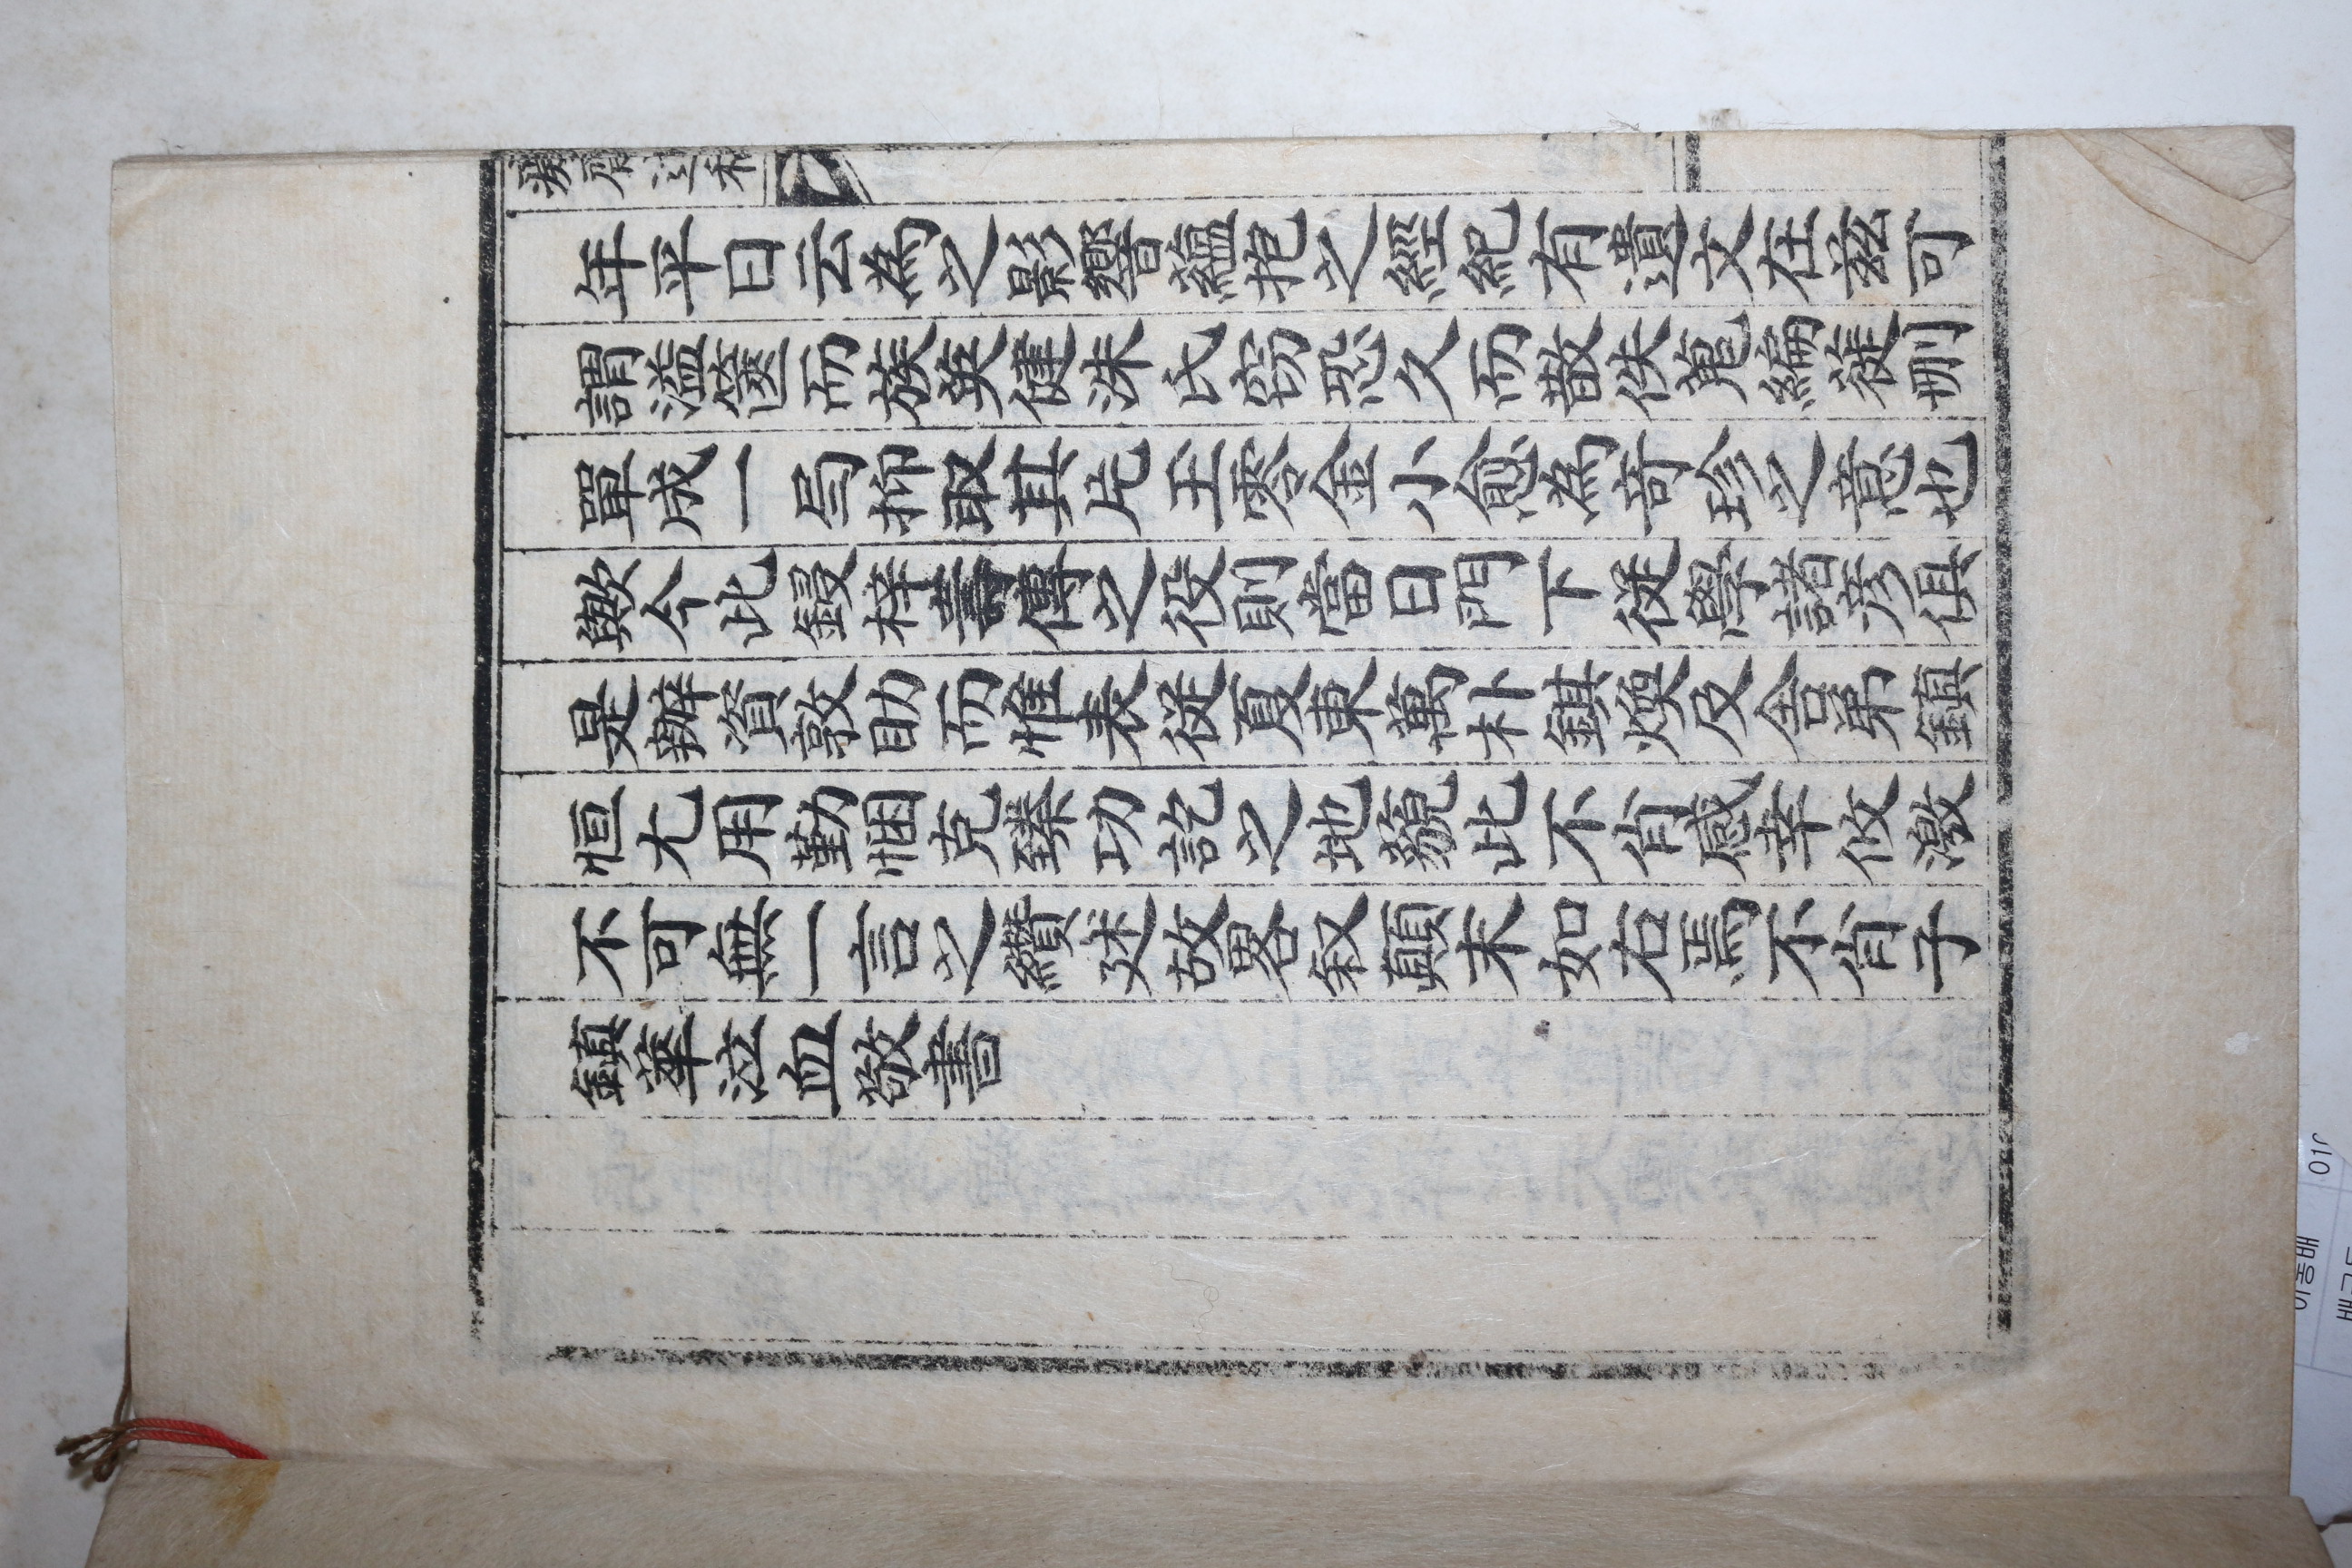 年平日云為之影響蘊抱之經紀有遺文在茲可
謂溢篋而族英健洙氏窃恐久而散佚蒐編蓰刪
單成一局抑取其片玉零金小愈為奇珍之意也
歟今此鋟梓壽傳之役則當日門下従學諸彦俱
是辦資敦助而惟表従夏東萬朴錤煥及舍弟鎮
恒尤用勤悃克臻功訖之地藐此不肖感幸攸激
不可無一言之纘述故畧叙顛末如右焉不肖子
鎮華泣血敬書
이동배
010